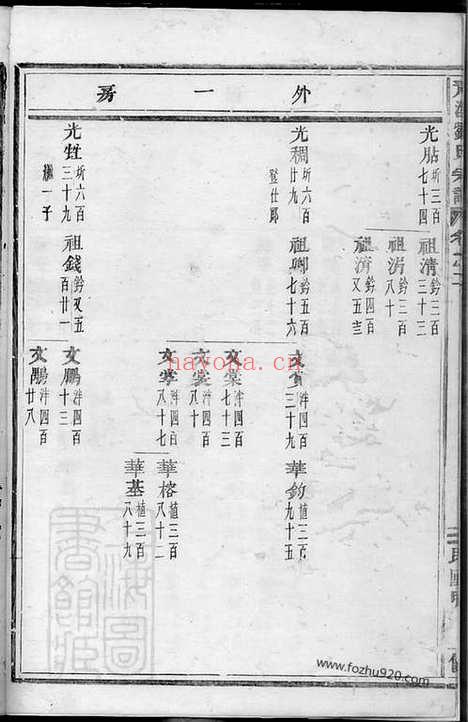 外一房
光點 圻三百七十四
祖清 鈐三百三十三
祖涓 鈐三百八十
祖濟 鈐四百又五
光稠 圻六百廿九
登仕郎
祖卿 鈐五百七十六
文賞 泮四百三十九
華鈞 植三百九十五
文棠 泮四百七十三
文裳 泮四百八十
文掌 泮四百八十七
華榕 植三百八十二
華基 植三百八十九
光甡 圻六百三十九
繼一子
祖錢 鈐又五百廿一
文鵬 泮四百十三
文鷗 泮四百廿八
nayona.cn
www.fozhu920.com